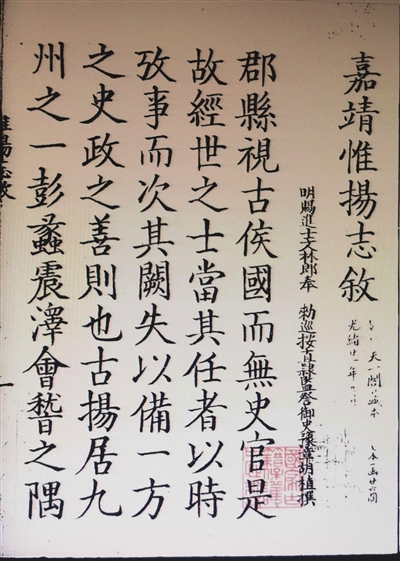 嘉靖惟揚志敘
天一閣
本
光緒廿一年
本一函廿六
明賜進士文林郎奉 勅巡按直隸監察御史豫章胡植撰
郡縣視古侯國而無史官是
故經世之士當其任者以時
攷事而次其闕失以備一方
之史政之善則也古揚居九
州之一彭蠡震澤會稽之隅
惟揚志敘